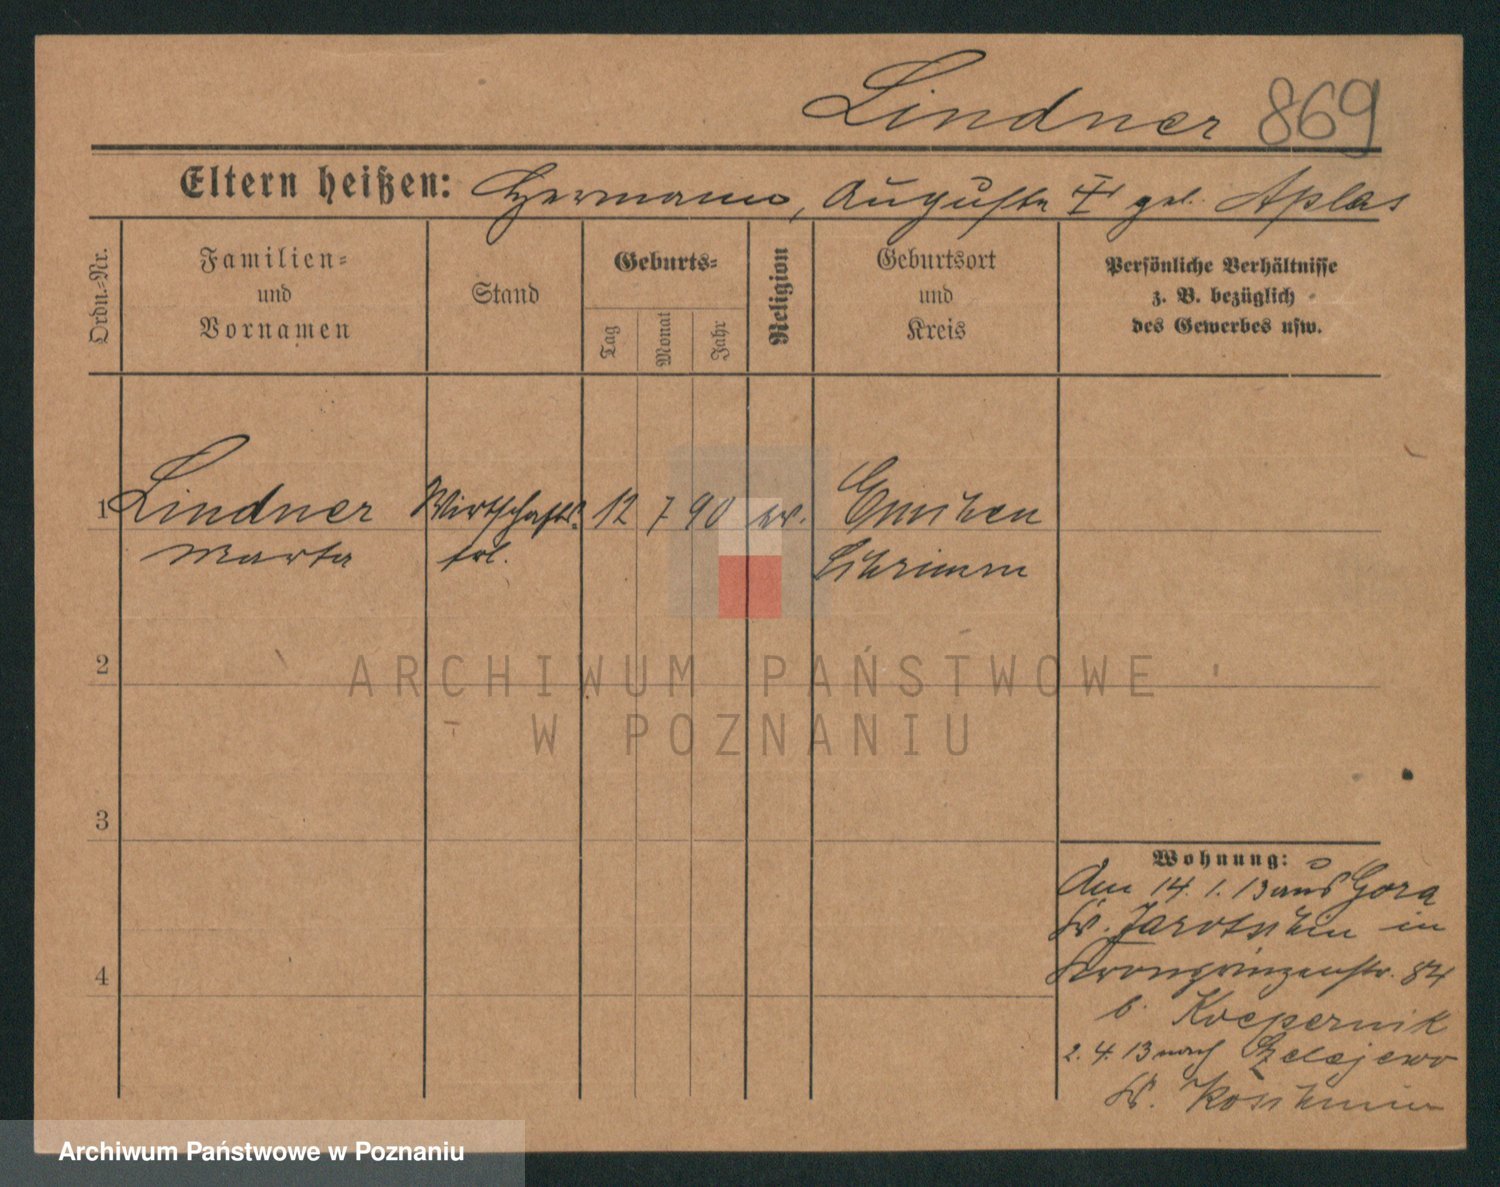 Lindner 869
Eltern heißen: Hermann, Auguste geb. Aplas
Ordn.-Nr.
Familien-
und
Vornamen
Stand
Geburts-
Tag
Monat
Jahr
Religion
Geburtsort
und
Kreis
Persönliche Verhältnisse
z. B. bezüglich
des Gewerbes usw.
1 Lindner Wirtschafts 12 7 90 ev.
Marta frl. Schrimm
2
3
4
Wohnung:
Am 14. 1. 13 aus Gora
Kr. Jarotschin in
Kronprinzenstr. 84
b. Koepernik
2. 4. 13 nach
Kr. Koschmin
ARCHIWUM PAŃSTWOWE
W POZNANIU
Archiwum Państwowe w Poznaniu